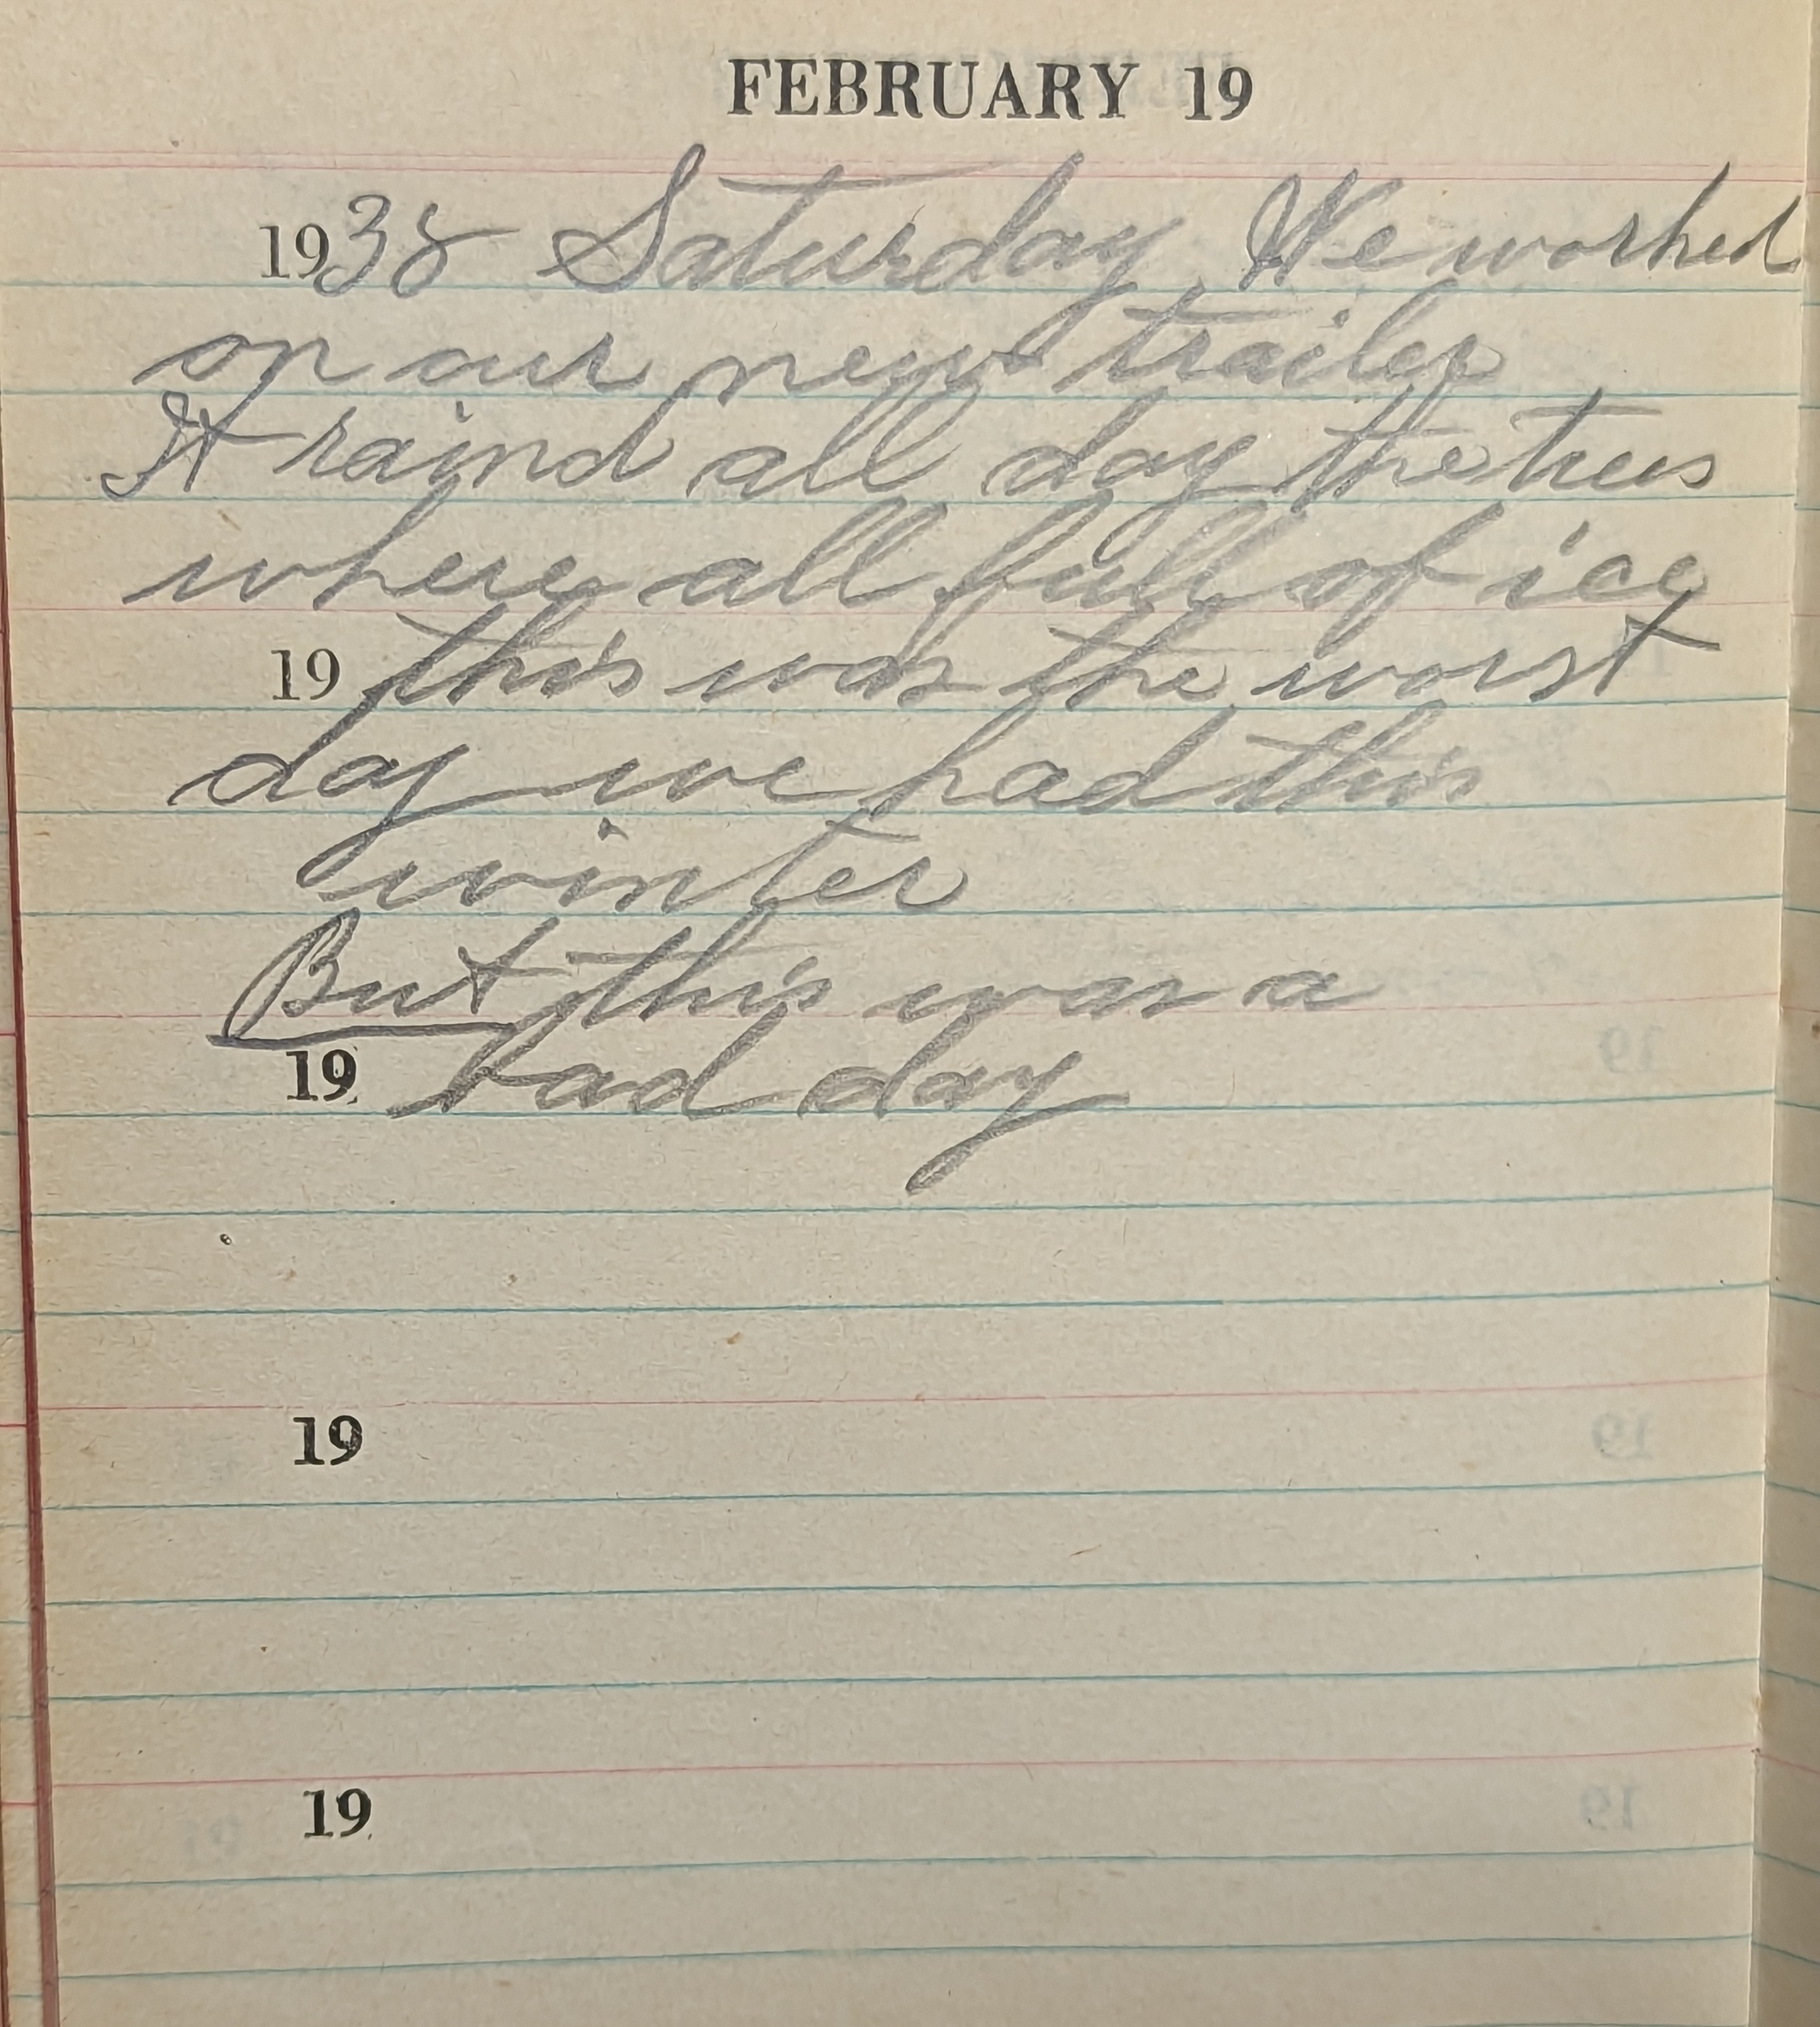 FEBRUARY 19
1938 Saturday We worked
on our new trailer
It raind all day the trees
where all full of ice
19 this was the worst
day we had this
winter
But this was a
19 bad day
19
19